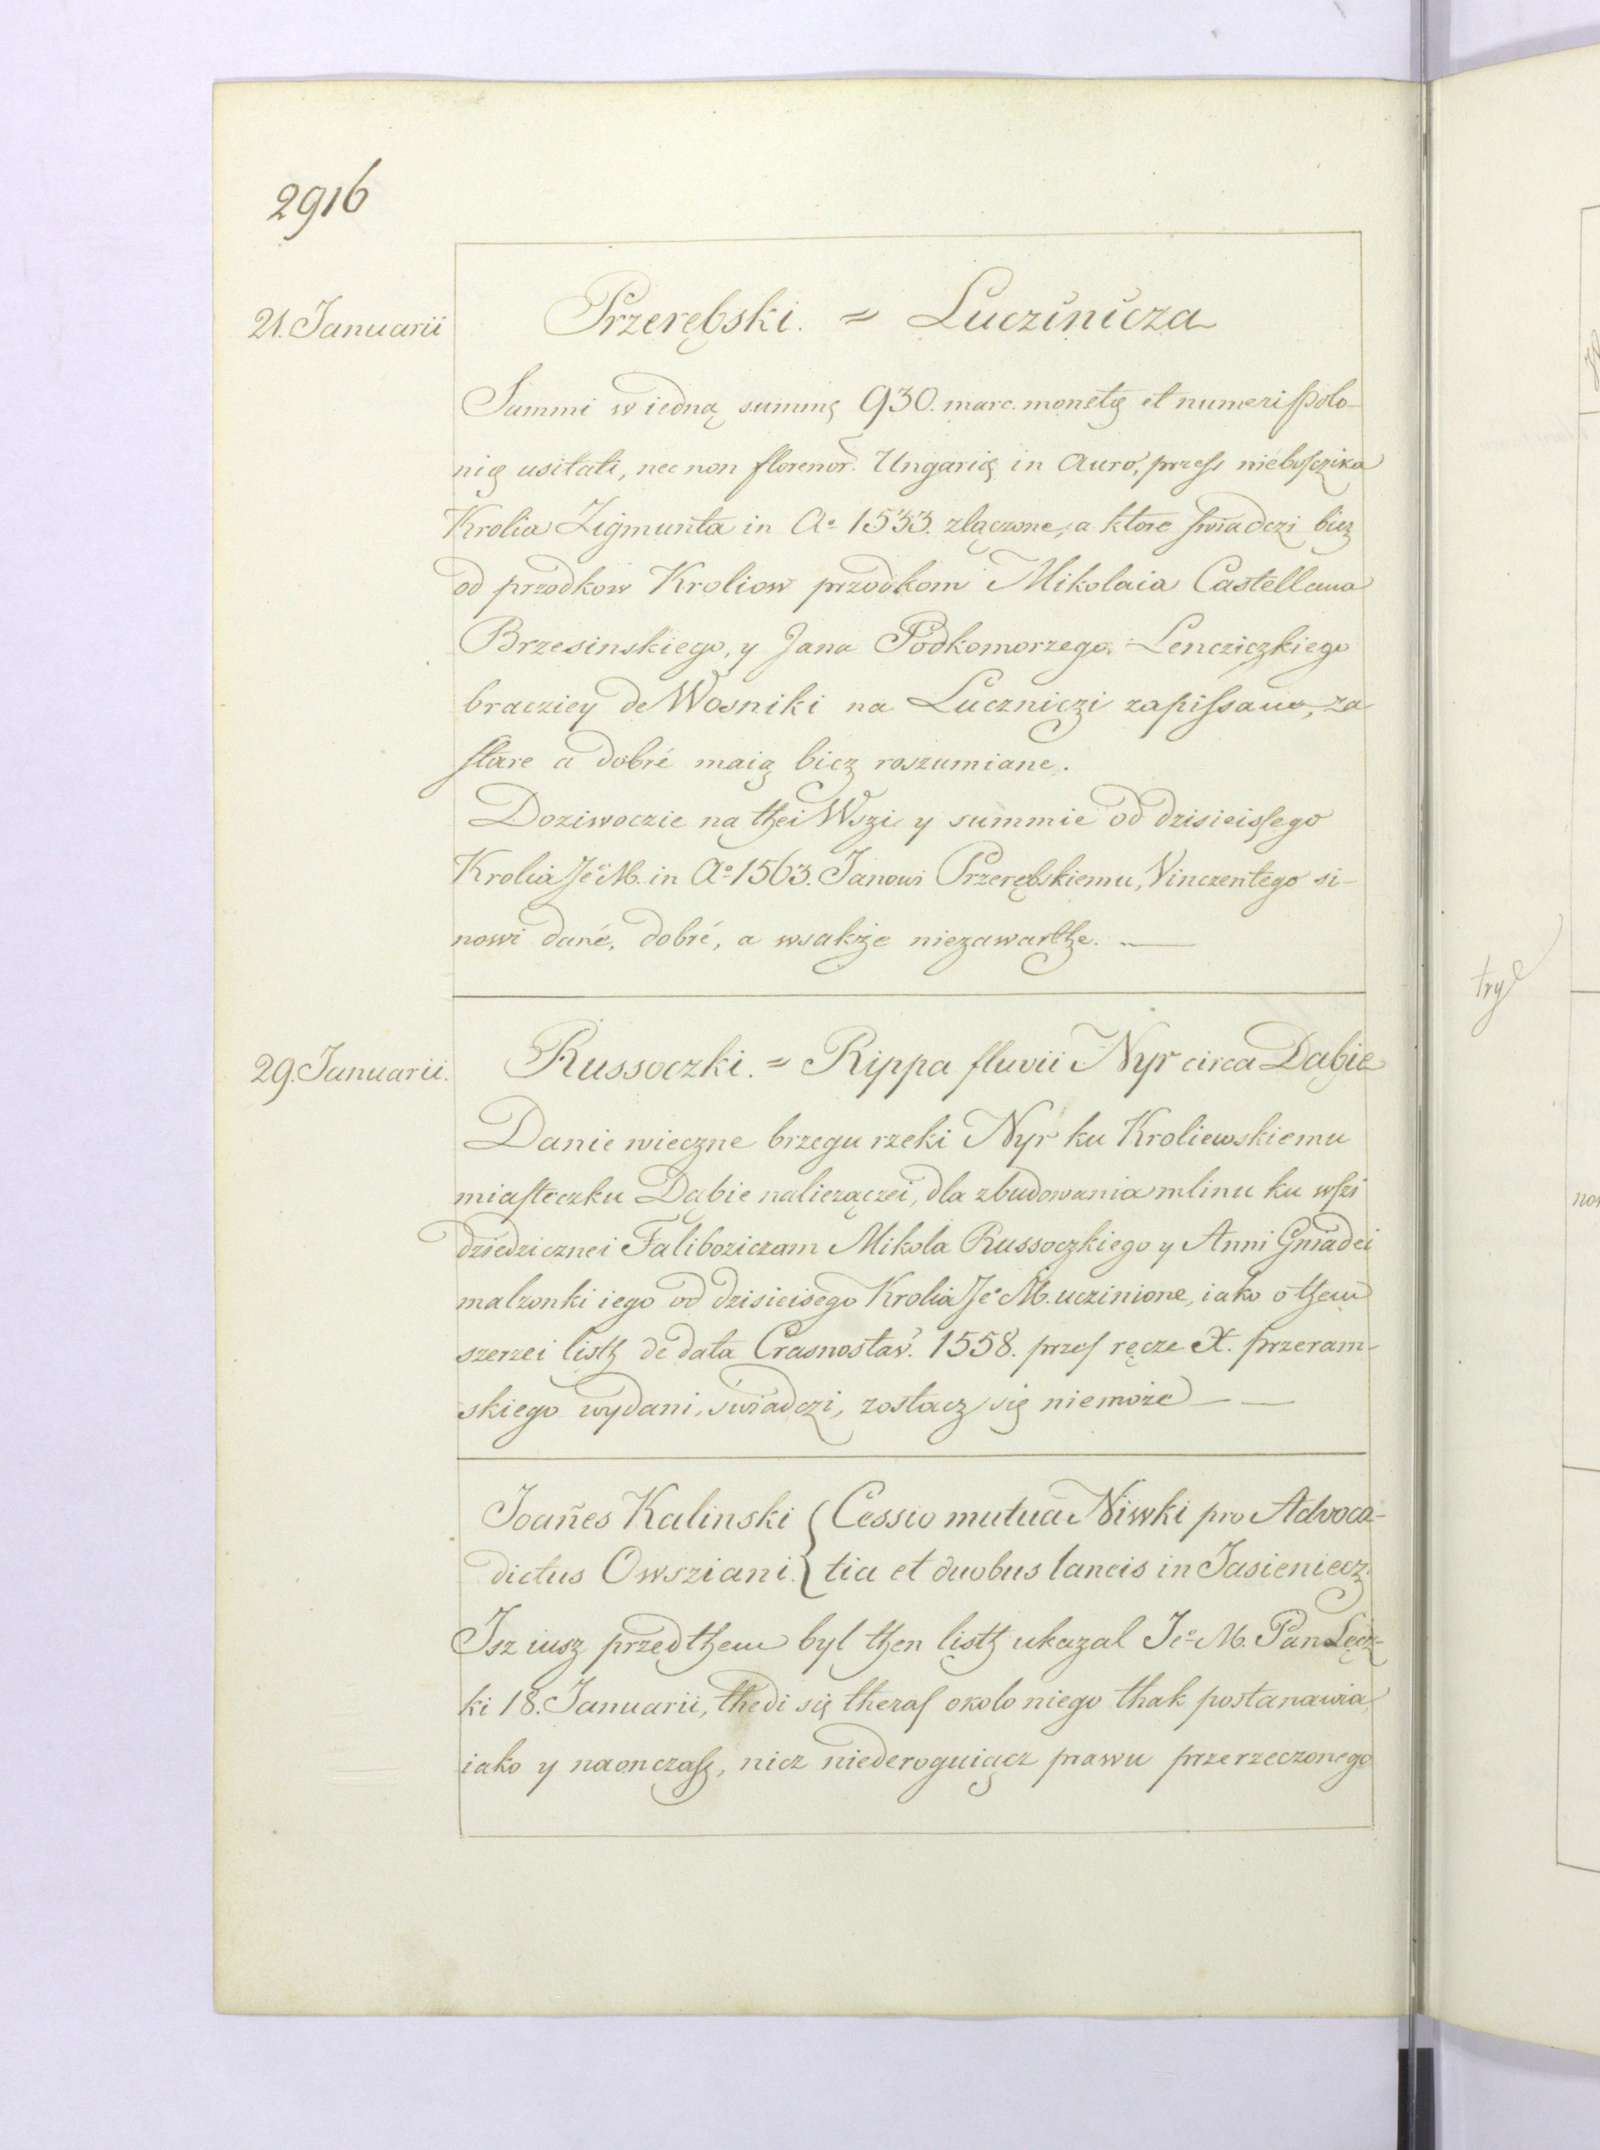 2916
21. Januarii
Przerębski. = Luczinicza
Summi w iedną summę 930. marc. monetę et numeri Polo-
nię usitati, nec non florenor. Ungarię in Auro, przess nieboſczika
Krolia Zigmunta in Aº 1533. złączone, a ktore swiadczi bicz
od przodkow Kroliow przodkom Mikolaia Castellana
Brzesinskiego, y Jana Podkomorzego Lencziczkiego
bracziey de Wosniki na Luczniczi zapiſsano, za
stare a dobré maią bicz roszumiane.
Doziwoczie na thei Wszi y summie od dzisieiſsego
Krolia Jeº M. in Aº 1563. Janowi Przerębskiemu, Vinczentego si-
nowi dané, dobré, a wsakże niezawarthe.
29. Januarii.
Russoczki. = Rippa fluvii Nyr circa Dąbie
Danie wieczne brzegu rzeki Nyr ku Kroliewskiemu
miasteczku Dąbie nalieżączei, dla zbudowania mlinu ku wſzi
dziedzicznei Faliboziczam Mikola Russoczkiego y Anni Gniadei
malzonki iego od dzisieisego Krolia Jeº M. uczinione, iako o them
szerzei listh de data Crasnostaw. 1558. przeſ ręcze X. Przeram-
skiego wydani, swiadczi, zostacz się niemoże
Joañes Kalinski { Cessio mutua Niwki pro Advoca-
dictus Owsziani. { tia et duobus laneis in Jasieniecz.
Jsz iusz przedthem byl then listh ukazal Jeº M. Pan Lęcz-
ki 18. Januarii, thedi się theraſ okolo niego thak postanawia,
iako y naonczaſ, nicz niederoguiącz prawu przerzeczonego
try
now